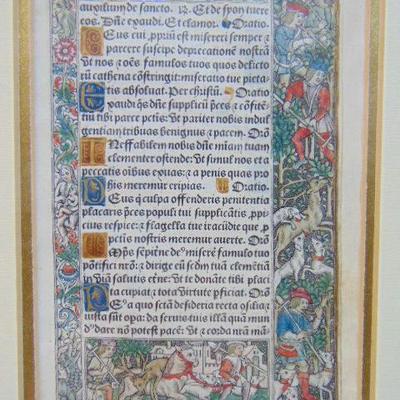 auxilium de sancto. ℟. Et de syon tuere
eos. Dn̄e exaudi. Et clamor. Oratio.
Deus cui, ꝓpriū est misereri semper ⁊
parcere suscipe deprecationē nostrā
Vt nos ⁊ oēs famulos tuos quos delicto
rū cathena cōstringit: miseratio tue pieta
tis absoluat. Per christū. Oratio
Exaudi q̄s dn̄e suppliciū p̄ces ⁊ cōfitē
tiū tibi parce pctīs: Vt pariter nobis indul
gentiam tribuas benignus ⁊ pacem. Orō
Ineffabilem nobis dn̄e miām tuam
clementer ostende: Vt simul nos et a
peccatis oībus exuas: a penis quas pro
his meremur eripias. Oratio.
Deus q̄ culpa offenderis penitentia
placaris p̄ces populi tui supplicātis ꝓpi
cius respice: ⁊ flagella tue iracūdie que p̄
petīs nostris meremur auerte. Orō
Oīps sēpitne deꝰ miserē famulo tuo
pontifici nr̄o: ⁊ dirige eū scḋm tuā clemētiā
in viā salutis eterne: Vt te donāte tibi placi
ta cupiat ⁊ tota virtute ꝑficiat. Orō
Deꝰ a quo sctā desideria recta cōsilia ⁊
iusta sūt opa: da seruis tuis illā quā mun
dꝰ dare nō potest pacē: Vt ⁊ corda nrā mā-